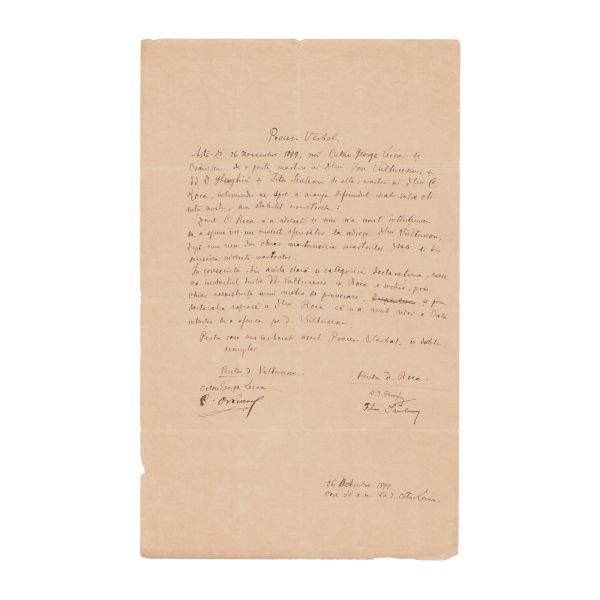 Proces-Verbal.
Astă-di 26 novembre 1899, noi Octav George Lecca și
de o parte martori ai Dlui Ion Vulturescu, și
dd D. Gheorghiu și Titu de alta, martori ai Dlui C.
Roca, spre a aranja diferendul iscat între
noștri, am stabilit următoarele:
Dnul C. Roca n'a adresat și nici n'a avut intențiunea
de a spune vre-un cuvînt ofensător la adresa Dlui Vulturescu,
după cum reese din chiar mărturisirea martorilor și din
martorilor.
În consecință, din acéstă clară și categorică declarațiune, reese
că incidentul între dd Vulturescu și Roca e închis, prin
chiar neexistența unui motiv de provocare, și prin
declarația expresă a Dlui Roca că n'a avut nici o dată
intenția de a ofensa pe d. Vulturescu
Pentru care am încheiat acest Proces Verbal, în dublu
exemplar
Pentru d. Vulturescu.
Octav George Lecca
Pentru d. Roca.
Titu
26 1899
la d. Octav Lecca